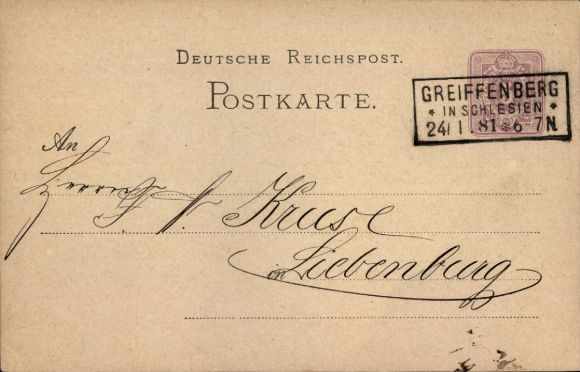 DEUTSCHE REICHSPOST.
POSTKARTE.
GREIFFENBERG
* IN SCHLESIEN *
24/1 81 * 6-7N
An
Herrn
Kruse
in Liebenburg